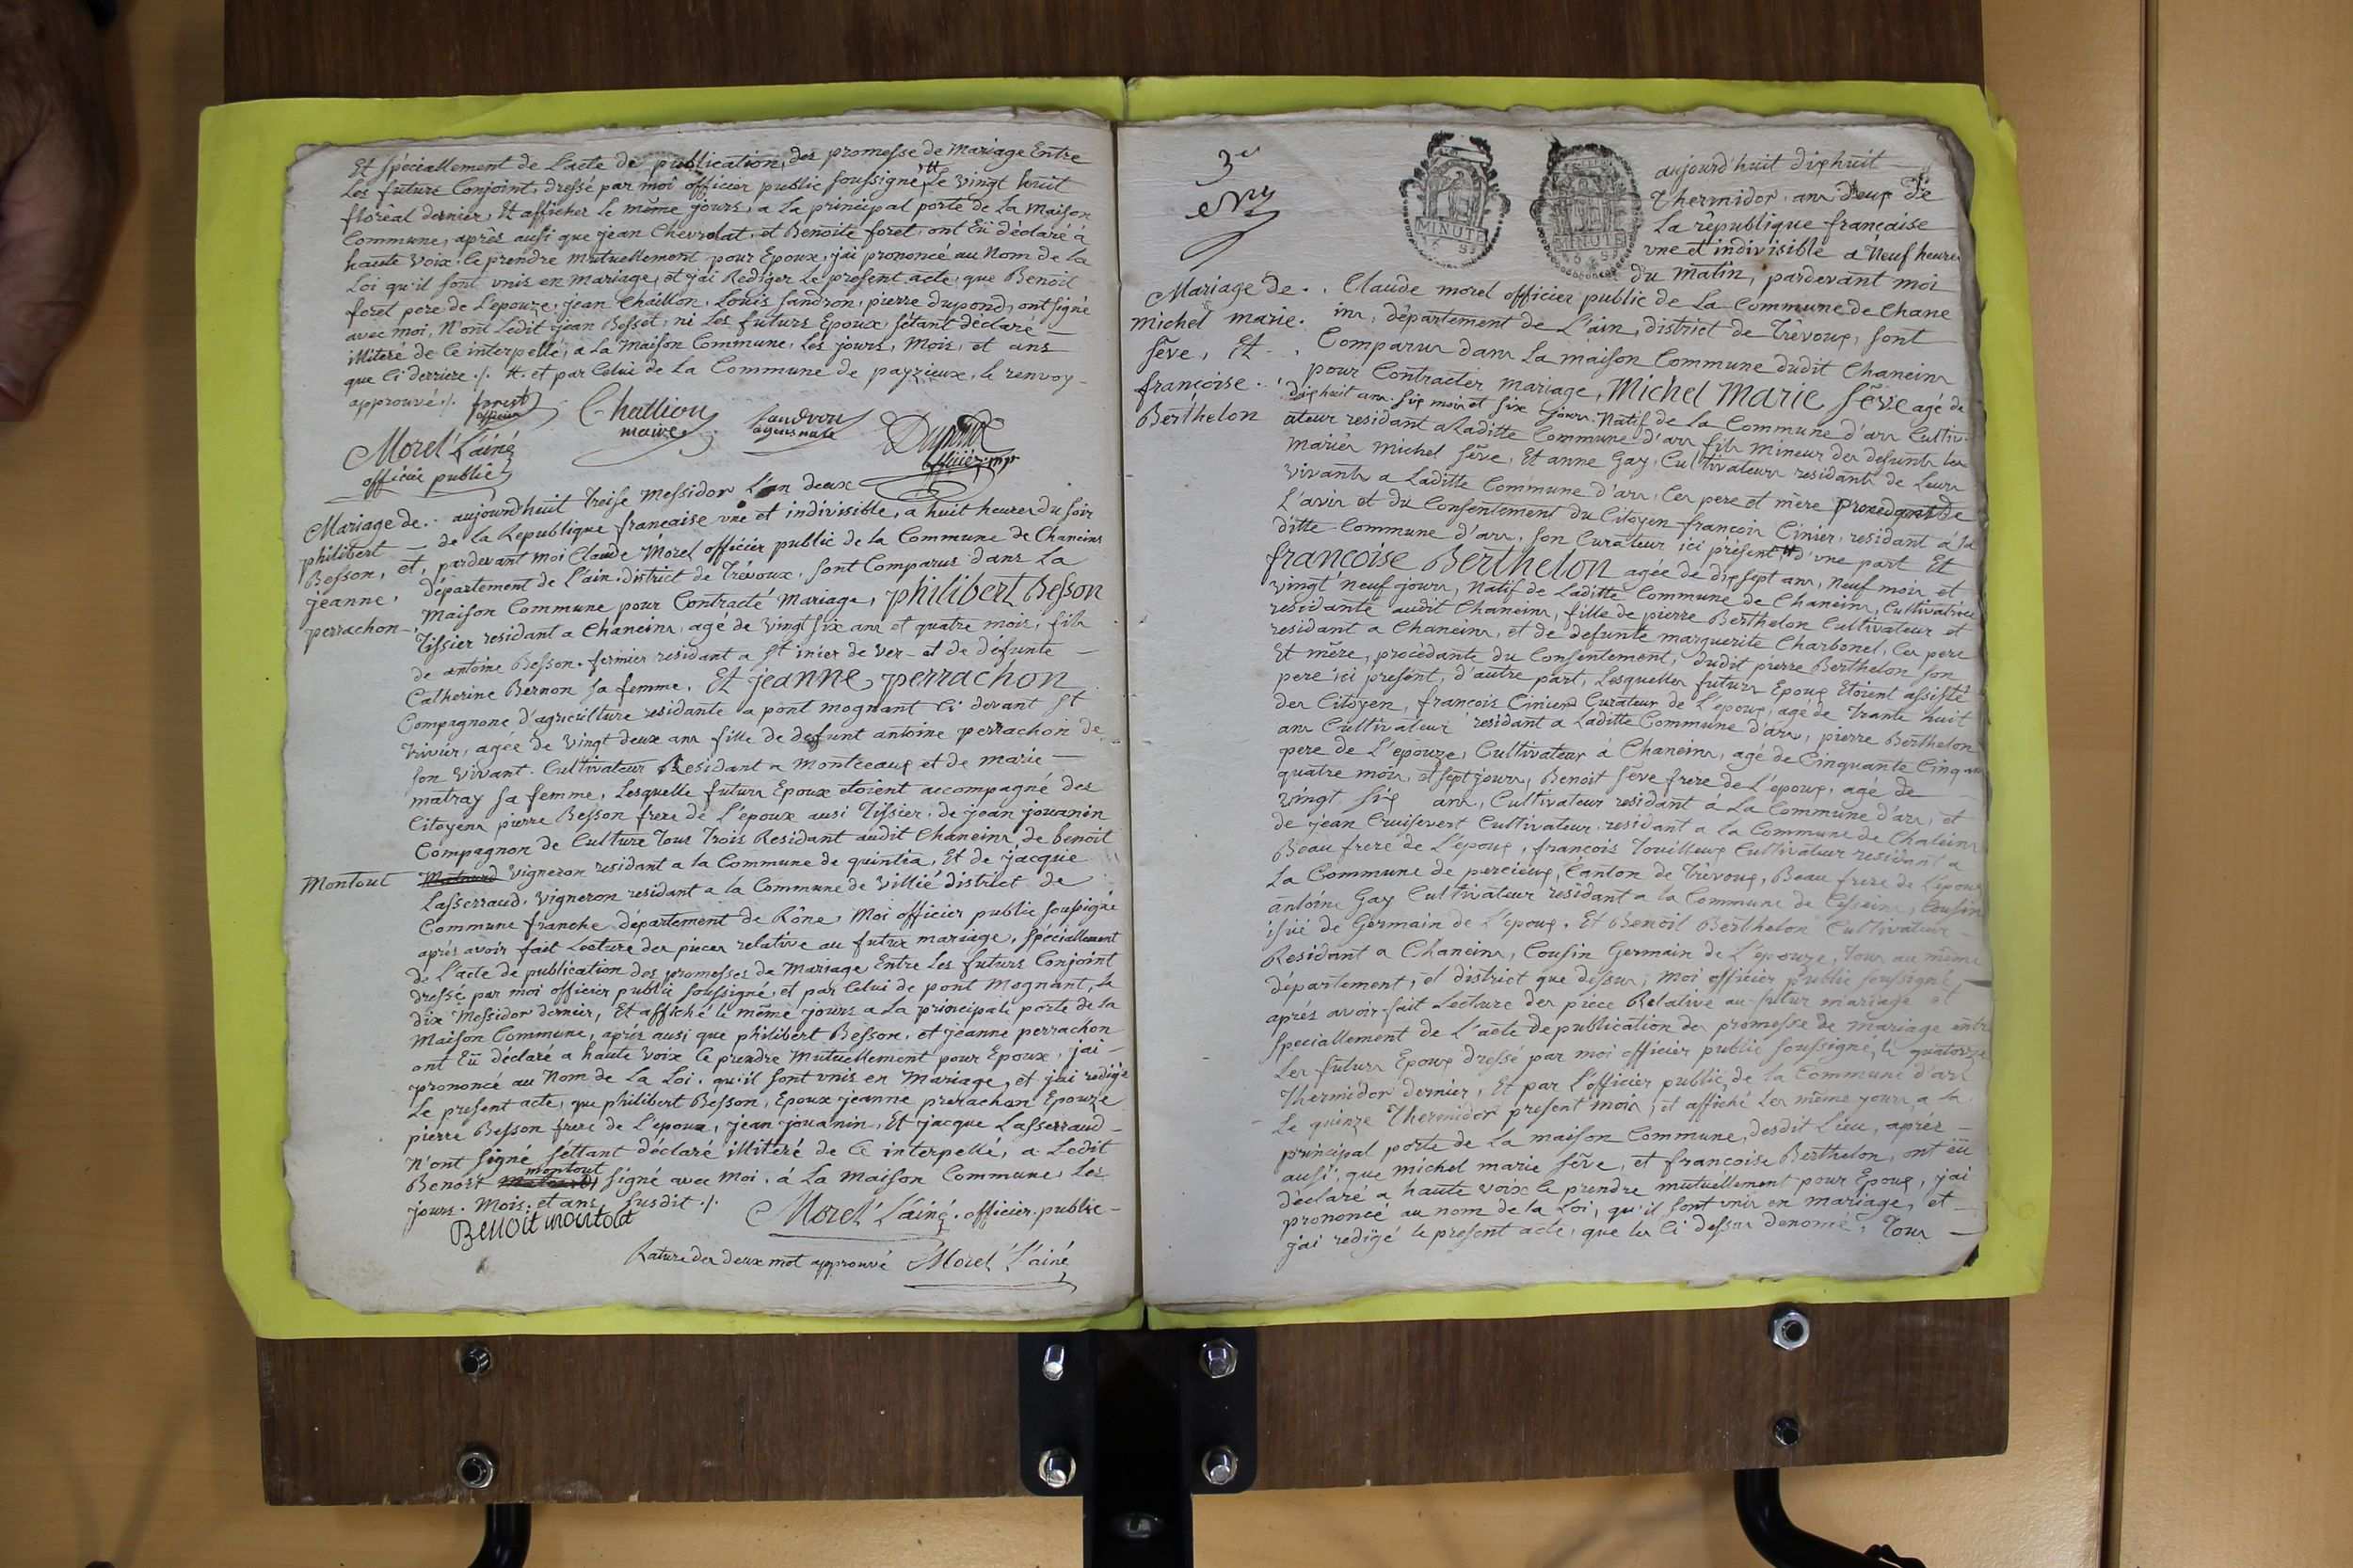 Et spéciallement de L'acte de publication, des promesse de Mariage Entre
Les future Conjoint, dressé par moi officier public soussigné, # Le vingt huit
floréal dernier, Et afficher le même jours, a La principal porte de La Maison
Commune, après ausi que jean Chevrolat, et Benoite foret, ont Eü déclaré à
haute Voix, ce prendre mutuellement pour Epoux, j'ai prononcé au Nom de La
Loi qu'il sont vnis en mariage, et j'ai Rediger Le present acte, que Benoit
foret pere de L'epouze, jean Chaillon, Louis Sandron, pierre dupond, ont signé
avec moi, N'ont Ledit jean Besset, ni Les futurs Epoux, sétant déclaré
illiteré de Ce interpellé, a La Maison Commune, Les jours, Mois, et ans
que Ci derriere ./. #. et par Celui de La Commune de payzieux, le renvoy
approuvé ./. forest
officier
Chaillion
maire
Sandron
agent nale
Dupond
officier mpr
Morel L'ainé
officié public
Mariage de
philibert
Besson, et,
jeanne
perrachon
aujourdhuit Treise Messidor L'an deux
de la Republique francaise vne et indivisible, a huit heures du soir
pardevant moi Claude Morel officier public de la Commune de Chaneins
département de L'ain, district de Trévoux, sont Comparus dans La
Maison Commune pour Contracté Mariage, philibert Besson
Tissier residant a Chaneins, agé de vingt six ans et quatre mois, fils
de antoine Besson, fermier residant a St inier de ver et de défunte
Catherine Bernon sa femme, Et jeanne perrachon
Compagnone d'agriculture residante a pont mognant Ci devant St
trivier, agée de vingt deux ans fille de defunt antoine perrachon de
son vivant Cultivateur Residant a Montceaux et de marie
matray sa femme, Lesquelle futurs Epoux étoient accompagné des
Citoyens pierre Besson frere de L'epoux ausi Tissier, de jean jouanin
Compagnon de Culture Tous Trois Residant audit Chaneins, de benoit
Montout
vigneron residant a la Commune de quintia, Et de jacque
Lasserraud, vigneron residant a la Commune de villié district de
Commune franche département de Rône, Moi officier public soussigné
après avoir fait Lecture des pieces relative au futur mariage, spéciallement
de L'acte de publication des promesses de Mariage Entre Les futurs Conjoint
dressé par moi officier public soussigné, et par Celui de pont Mognant, le
dix Messidor dernier, Et affiché le même jours a La principale porte de la
Maison Commune, après ausi que philibert Besson, et jeanne perrachon
ont Eü déclaré a haute voix Ce prendre Mutuellement pour Epoux, j'ai
prononcé au Nom de La Loi, qu'il sont vnis en Mariage, et j'ai redigé
Le present acte, que philibert Besson, Epoux jeanne prerachon Epouze
pierre Besson frere de L'epoux, jean jouanin, Et jacque Lasserraud
N'ont signé séttant déclaré illiteré de Ce interpellé, a Ledit
montout
Benoit signé avec Moi, à La Maison Commune, Les
jours, Mois, et ans, susdit ./.
Benoit montout
Morel L'ainé, officier public
Rature des deux mot approuvé Morel L'ainé
3e
MINUTE
MINUTE
aujourd'huit dixhuit
Thermidor, ans Deux De
La république française
vne et indivisible a Neuf heures
du Matin, pardevant moi
Mariage de
Michel marie
séve, Et
françoise
Berthelon
Claude morel officier public de La Commune de Chane
ins, département de L'ain, district de Trévoux, sont
Comparus dans La maison Commune dudit Chaneins
pour Contracter mariage, Michel Marie séve agé de
dixhuit ans six mois et six jours, Natif de La Commune d'ars Cultiv
ateur residant a Laditte Commune d'ars fils mineur des defunts les
Mariés Michel séve, Et anne Gay, Cultivateurs residants de Leurs
vivants a Laditte Commune d'ars, Ces pere et mère procedant de
L'avis et du Consentement du Citoyen françois Cinier, residant à sa
ditte Commune d'ars, son Curateur ici présent # d'une part Et
françoise Berthelon agée de dixsept ans, Neuf mois et
vingt neuf jours, Natif de Laditte Commune de Chaneins, Cultivatrice
residante audit Chaneins, fille de pierre Berthelon Cultivateur et
residant a Chaneins, et de defunte marguerite Charbonel, Ces pere
Et mère, procédante du Consentement, dudit pierre Berthelon son
pere ici présent, d'autre part, Lesquelles futurs Epoux Etoient assisté
des Citoyen, francois Cinier Curateur de L'epoux, agé de Trante huit
ans Cultivateur residant a Laditte Commune d'ars, pierre Berthelon
pere de L'epouze, Cultivateur à Chaneins, agé de Cinquante Cinq ans
quatre mois, et sept jours, Benoit séve frere de L'epoux, agé de
vingt six ans, Cultivateur residant à La Commune d'ars, et
de jean Cruisevert Cultivateur, residant a la Commune de Chaleins
Beau frere de L'epoux, françois Touilleux Cultivateur residant a
La Commune de percieux, Canton de Trévoux, Beau frere de L'époux
antoine Gay Cultivateur residant a la Commune de Cesseins, Cousin
isüé de Germain de L'epoux, Et Benoit Berthelon Cultivateur
Residant a Chaneins, Cousin Germain de L'épouze, Tous au même
département, et district que dessus, Moi officier public soussigné
après avoir fait Lecture des piéce Relative au futur mariage et
spéciallement de L'acte de publication des promesse de mariage entre
Les futurs Epoux dressé par moi officier public soussigné, le quatorze
Thermidor dernier, Et par L'officier public de la Commune d'ars
Le quinze Thermidor present mois, et affiché les même jours, a La
principal porte de La maison Commune, desdit Lieu, après
ausi, que michel marie séve, et françoise Berthelon, ont eü
déclaré a haute voix ce prendre mutuellement pour Epoux, j'ai
prononcé au nom de la Loi, qu'il sont vnis en mariage, et
j'ai redigé le present acte, que les Ci dessus denomé, Tous